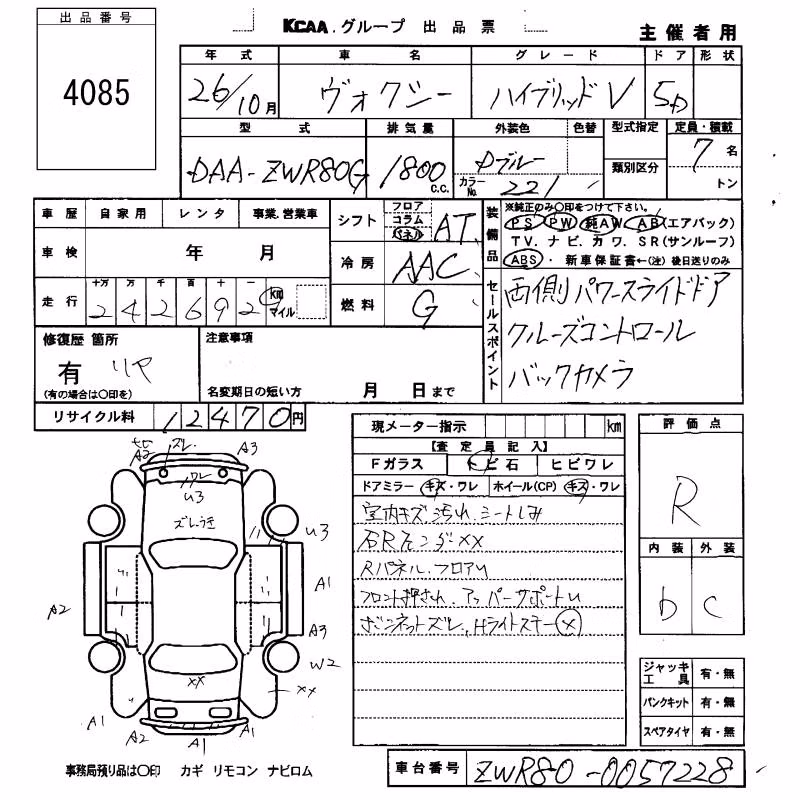 出品番号
4085
KCAA.グループ 出品票
主催者用
年式 車名 グレード ドア 形状
26/10月 ヴォクシー ハイブリッドV 5D
型式 排気量 外装色 色替 型式指定 定員・積載
DAA-ZWR80G 1800 c.c. Dブルー 7名
カラーNo. 221 類別区分 トン
車歴 自家用 レンタ 事業.営業車
車検 年 月
走行 十万 万 千 百 十 一 km マイル
2 4 2 6 9 2
シフト フロア コラム パネル AT
冷房 AAC
燃料 G
装備品
※純正のみ〇印をつけて下さい。
PS PW 純AW AB(エアバック)
TV. ナビ. カワ. SR(サンルーフ)
ABS . 新車保証書←(注)後日送りのみ
セールスポイント
両側パワースライドドア
クルーズコントロール
バックカメラ
修復歴 箇所
有 リヤ
(有の場合は〇印を)
注意事項
名変期日の短い方 月 日まで
リサイクル料 12470円
現メーター指示 km
【査定員記入】
Fガラス トビ石 ヒビワレ
ドアミラー キズ・ワレ ホイール(CP) キズ・ワレ
室内キズ.汚れ.シートしみ
Rパネル.フロアU
フロント押され.アッパーサポートU
ボンネットズレ.Hライトステー X
評価点
R
内装 外装
b c
ジャッキ工具 有・無
パンクキット 有・無
スペアタイヤ 有・無
A2 ズレ. A3
ワレ
U3
ズレうき
U3
A1
A2
A3
W2
XX
XX
A1
A2 A1 A1
事務局預り品は〇印 カギ リモコン ナビロム
車台番号 ZWR80-0057228